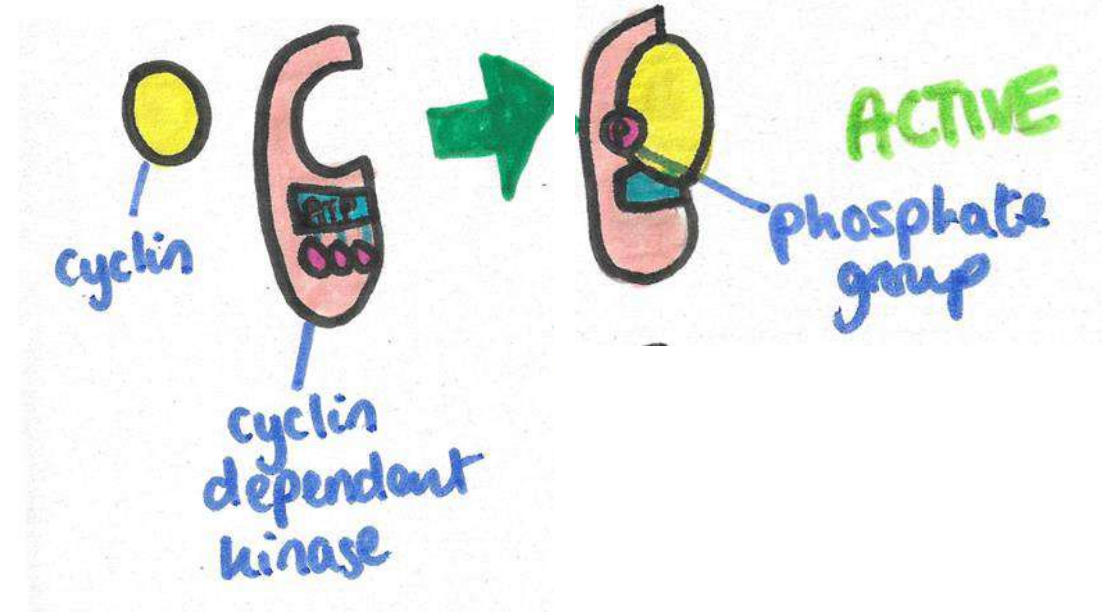 cyclin
ATP
cyclin
dependent
kinase
P
ACTIVE
phosphate
group